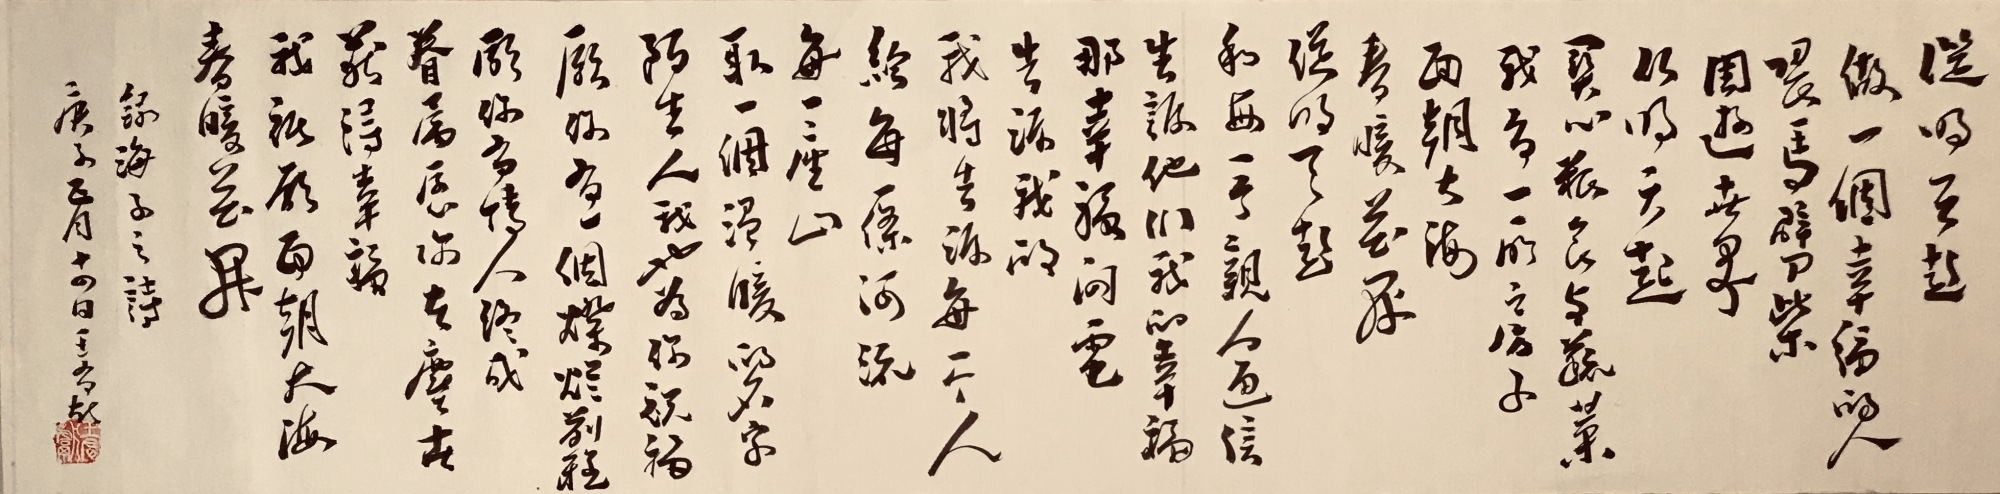 從明天起
做一個幸福的人
喂馬劈柴
周遊世界
從明天起
關心粮食与蔬菜
我有一所房子
面朝大海
春暖花開
從明天起
和每一个親人通信
告訴他们我的幸福
那幸福的闪電
告訴我的
我將告訴每一个人
給每一條河流
每一座山
取一個温暖的名字
陌生人我也為你祝福
願你有一個燦爛前程
願你有情人终成
眷屬願你在塵世
获得幸福
我祇願面朝大海
春暖花開
錄海子之詩
庚子正月十四日王